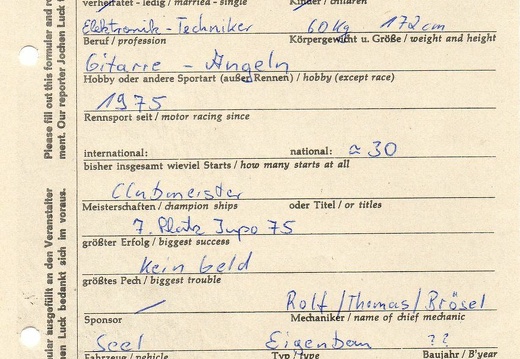 verheiratet - ledig / married - single Kinder / children
Elektronik-Techniker 60 Kg 172 cm
Beruf / profession Körpergewicht u. Größe / weight and height
Gitarre - Angeln
Hobby oder andere Sportart (außer Rennen) / hobby (except race)
1975
Rennsport seit / motor racing since
international: national: ≈ 30
bisher insgesamt wieviel Starts / how many starts at all
Clubmeister
Meisterschaften / champion ships oder Titel / or titles
7. Platz Jupo 75
größter Erfolg / biggest success
Kein Geld
größtes Pech / biggest trouble
Rolf / Thomas / Brösel
Sponsor Mechaniker / name of chief mechanic
Seel Eigenbau ??
Fahrzeug / vehicle Typ / type Baujahr / B'year
Please fill out this formular and re
ment. Our reporter Jochen Luck
ular ausgefüllt an den Veranstalter
en Luck bedankt sich im voraus.